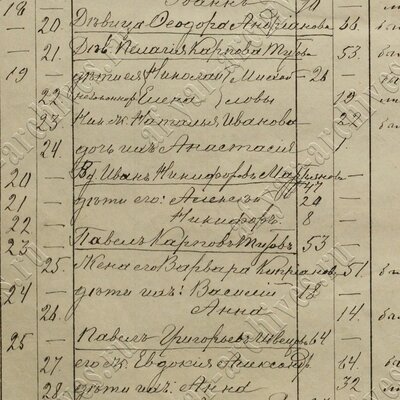 18 — Іоаннъ 70 —
— 20. Дѣвица Ѳеодора Андріанова — 66.
— 21. Пелагія Карпова Турова — 53.
19 — дѣти ея: Николай 26 —
— 22 Елена — 19
— 23. Наталья Иванова — 22
— 24. дочь ихъ Анастасія — 1
20 — Вд Иванъ Никифоровъ 47
21 — дѣти его: Алексѣй 20
22 — Никифоръ 8
23 — Павелъ Карповъ Туровъ 53 —
— 25. Жена его Варвара Кипріанова — 51.
24 — дѣти ихъ: Василій 18
— 26. Анна — 14.
25 — Павелъ Григорьевъ 64 —
— 27. его ж. Евдокія — 64.
— 28. дѣти ихъ: Анна — 32